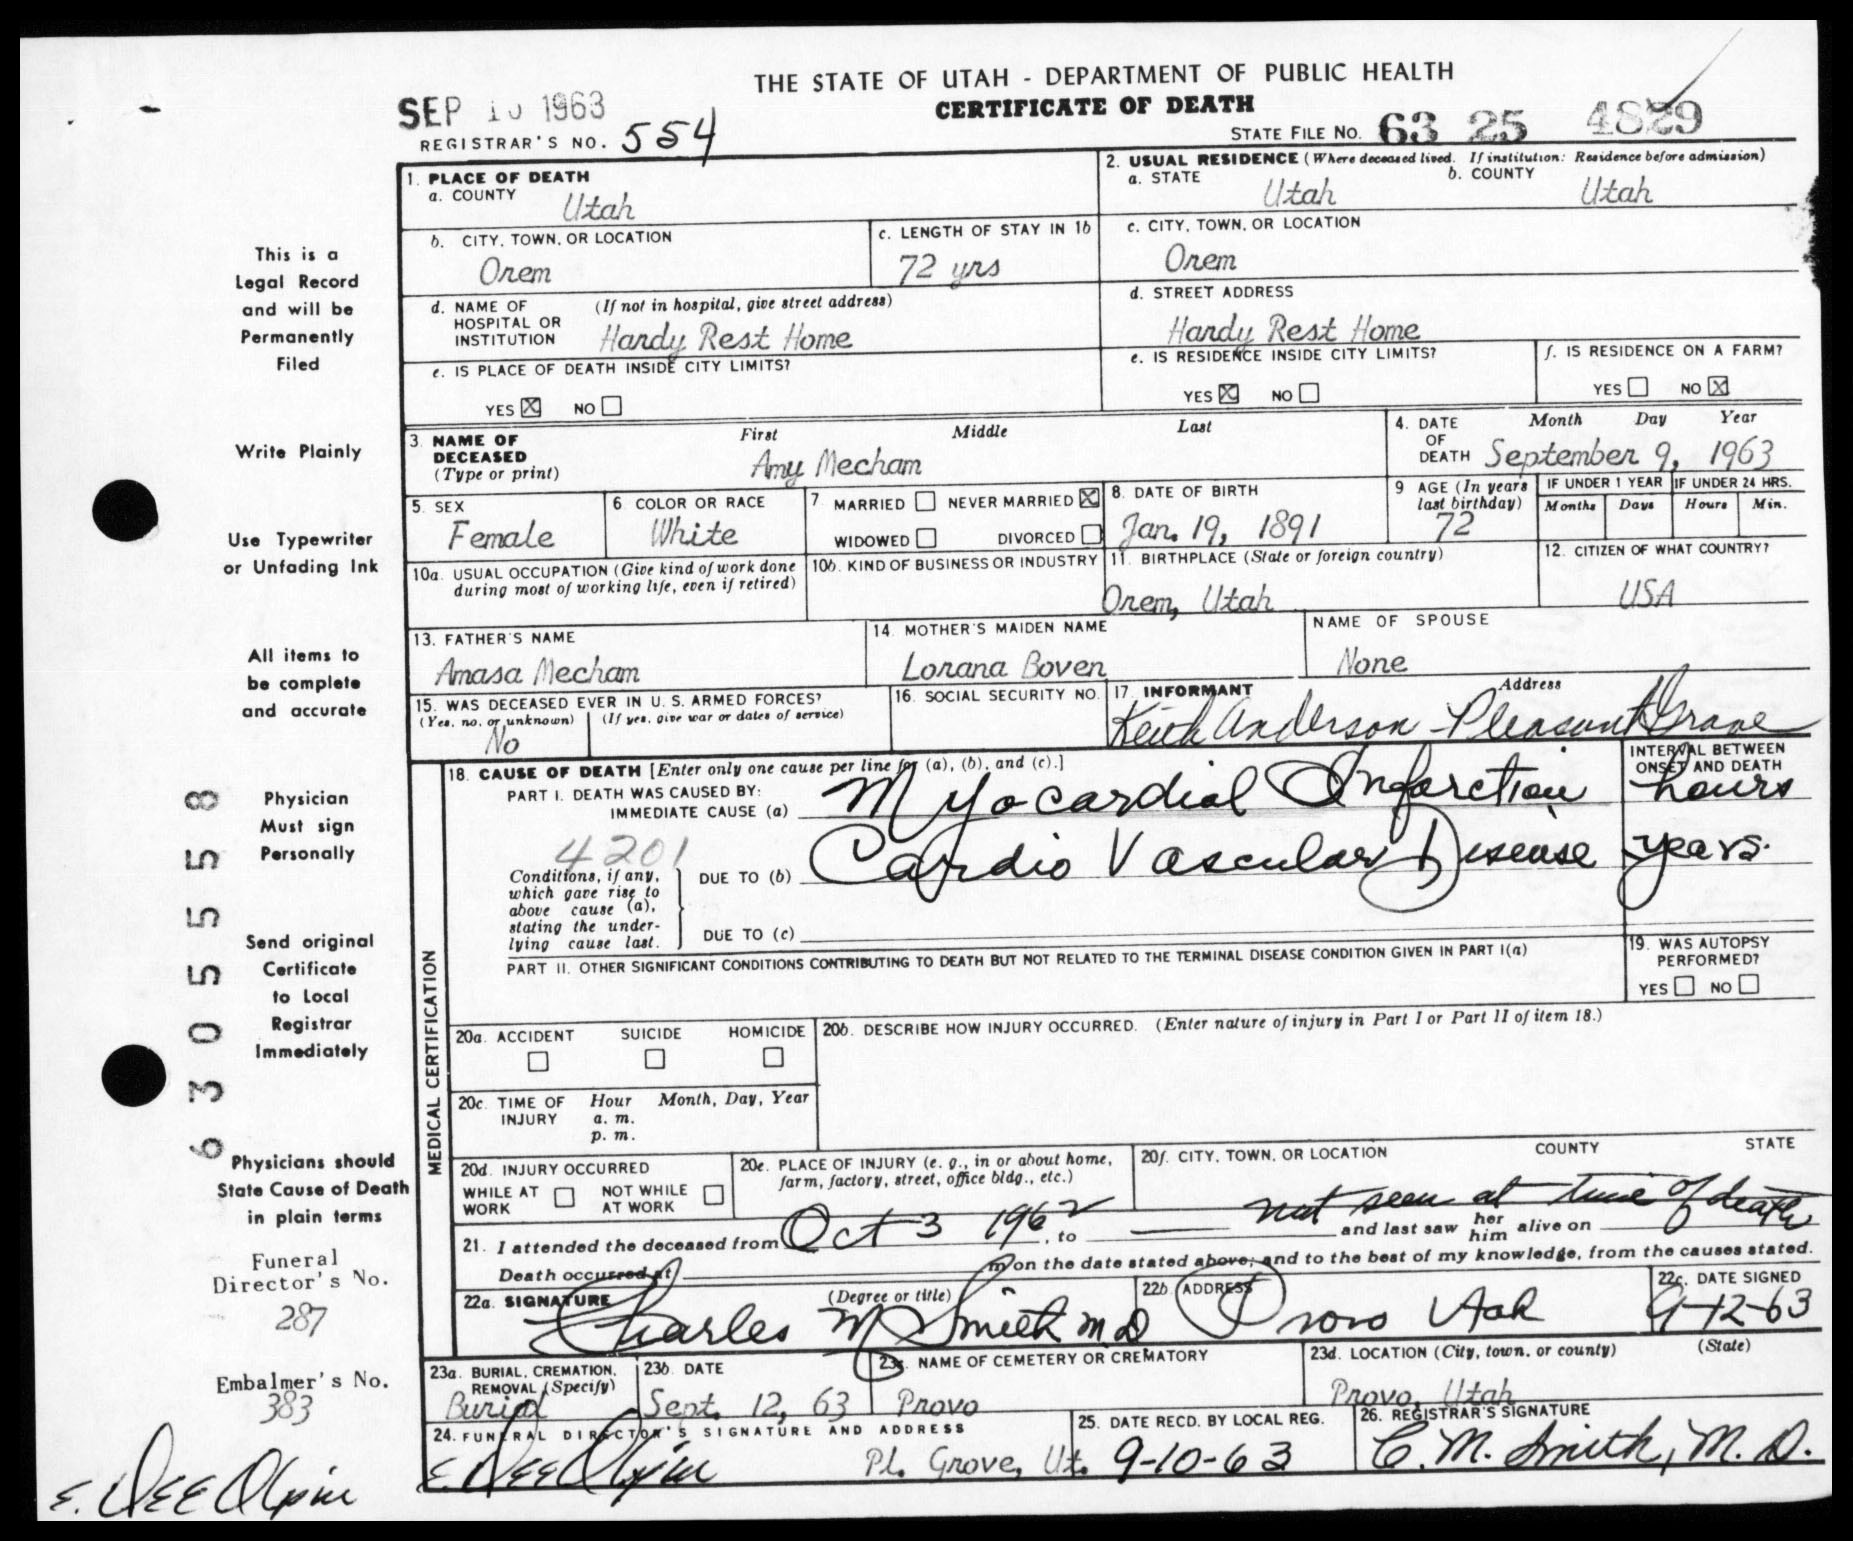 THE STATE OF UTAH - DEPARTMENT OF PUBLIC HEALTH
CERTIFICATE OF DEATH
SEP 1963
REGISTRAR'S NO. 554
STATE FILE NO. 63 25
1. PLACE OF DEATH
a. COUNTY
Utah
2. USUAL RESIDENCE (Where deceased lived. If institution: Residence before admission)
a. STATE Utah b. COUNTY Utah
b. CITY, TOWN, OR LOCATION
Orem
c. LENGTH OF STAY IN 1b
72 yrs
c. CITY, TOWN, OR LOCATION
Orem
d. NAME OF HOSPITAL OR INSTITUTION (If not in hospital, give street address)
Handy Rest Home
d. STREET ADDRESS
Handy Rest Home
e. IS PLACE OF DEATH INSIDE CITY LIMITS?
YES ☒ NO ☐
e. IS RESIDENCE INSIDE CITY LIMITS?
YES ☒ NO ☐
f. IS RESIDENCE ON A FARM?
YES ☐ NO ☒
3. NAME OF DECEASED (Type or print) First Middle Last
Amy Mecham
4. DATE OF DEATH Month Day Year
September 9, 1963
5. SEX
Female
6. COLOR OR RACE
White
7. MARRIED ☐ NEVER MARRIED ☒
WIDOWED ☐ DIVORCED ☐
8. DATE OF BIRTH
Jan. 19, 1891
9. AGE (In years last birthday)
72
IF UNDER 1 YEAR
Months Days
IF UNDER 24 HRS.
Hours Min.
10a. USUAL OCCUPATION (Give kind of work done during most of working life, even if retired)
10b. KIND OF BUSINESS OR INDUSTRY
11. BIRTHPLACE (State or foreign country)
Orem, Utah
12. CITIZEN OF WHAT COUNTRY?
USA
13. FATHER'S NAME
Amasa Mecham
14. MOTHER'S MAIDEN NAME
Lorana Boven
NAME OF SPOUSE
None
15. WAS DECEASED EVER IN U. S. ARMED FORCES?
(Yes, no, or unknown) (If yes, give war or dates of service)
No
16. SOCIAL SECURITY NO.
17. INFORMANT Address
Keith Anderson - Pleasant Grove
MEDICAL CERTIFICATION
18. CAUSE OF DEATH [Enter only one cause per line for (a), (b), and (c).]
INTERVAL BETWEEN ONSET AND DEATH
PART I. DEATH WAS CAUSED BY:
IMMEDIATE CAUSE (a) Myocardial Infarction hours
4201
Conditions, if any, which gave rise to above cause (a), stating the underlying cause last.
DUE TO (b) Cardio Vascular Disease years.
DUE TO (c)
PART II. OTHER SIGNIFICANT CONDITIONS CONTRIBUTING TO DEATH BUT NOT RELATED TO THE TERMINAL DISEASE CONDITION GIVEN IN PART I(a)
19. WAS AUTOPSY PERFORMED?
YES ☐ NO ☐
20a. ACCIDENT SUICIDE HOMICIDE
☐ ☐ ☐
20b. DESCRIBE HOW INJURY OCCURRED. (Enter nature of injury in Part I or Part II of item 18.)
20c. TIME OF INJURY Hour Month, Day, Year
a. m.
p. m.
20d. INJURY OCCURRED
WHILE AT WORK ☐ NOT WHILE AT WORK ☐
20e. PLACE OF INJURY (e. g., in or about home, farm, factory, street, office bldg., etc.)
20f. CITY, TOWN, OR LOCATION COUNTY STATE
not seen at time of death
21. I attended the deceased from Oct 3 1962, to and last saw her him alive on
Death occurred at m on the date stated above; and to the best of my knowledge, from the causes stated.
22a. SIGNATURE (Degree or title)
Charles M Smith MD
22b. ADDRESS
Provo Utah
22c. DATE SIGNED
9-12-63
23a. BURIAL, CREMATION, REMOVAL (Specify)
Burial
23b. DATE
Sept. 12, 63
23c. NAME OF CEMETERY OR CREMATORY
Provo
23d. LOCATION (City, town, or county) (State)
Provo, Utah
24. FUNERAL DIRECTOR'S SIGNATURE AND ADDRESS
E. Dee Olpin Pl. Grove, Ut.
25. DATE RECD. BY LOCAL REG.
9-10-63
26. REGISTRAR'S SIGNATURE
C. M. Smith, M. D.
This is a
Legal Record
and will be
Permanently
Filed
Write Plainly
Use Typewriter
or Unfading Ink
All items to
be complete
and accurate
Physician
Must sign
Personally
Send original
Certificate
to Local
Registrar
Immediately
Physicians should
State Cause of Death
in plain terms
Funeral
Director's No.
287
Embalmer's No.
383
E. Dee Olpin
63055558